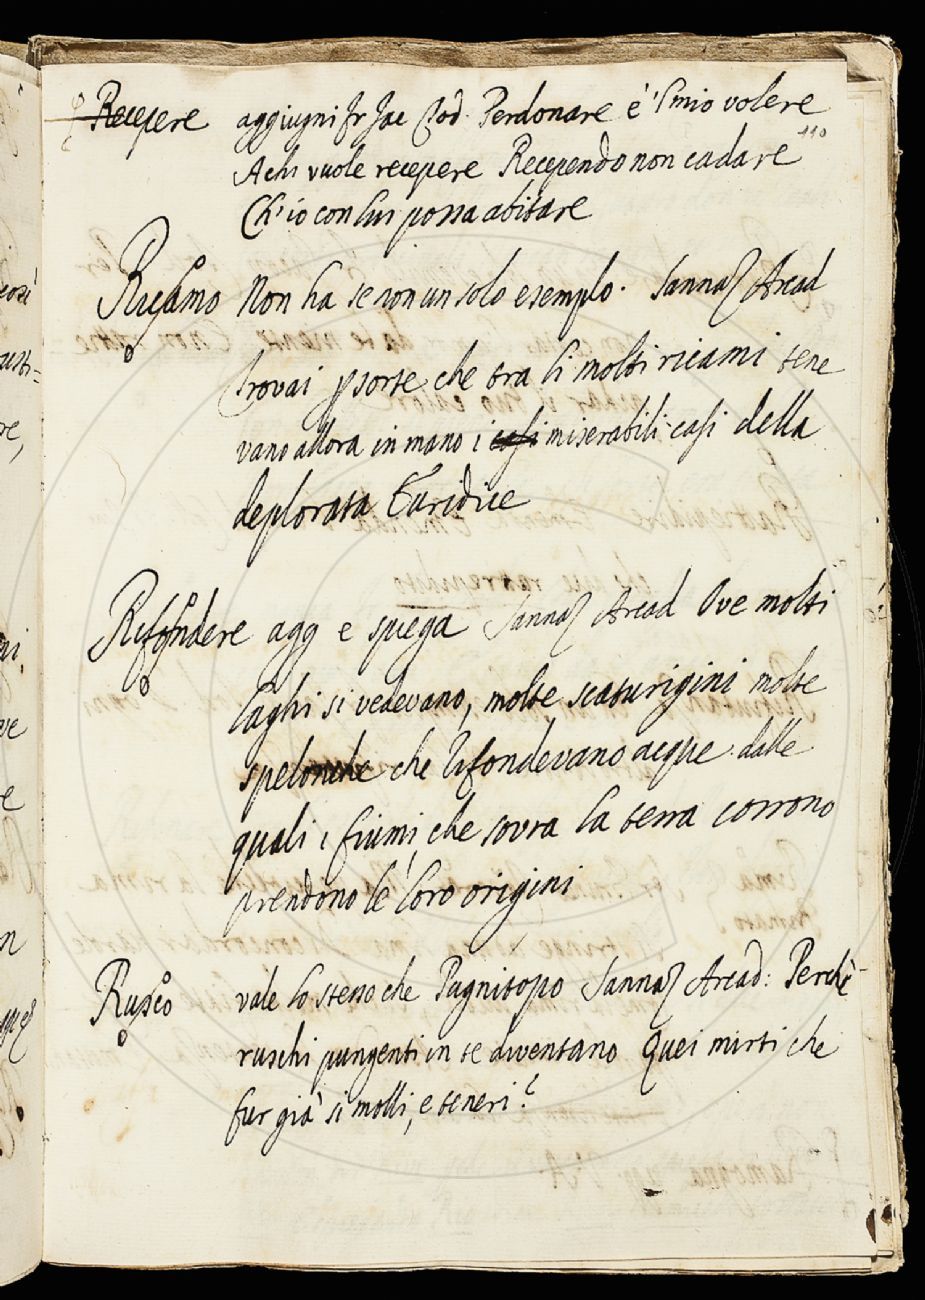 Recepere aggiugni fr Jac Tod. Perdonare è 'l mio volere
110
A chi vuole recepere Recependo non cadare
Ch'io con lui possa abitare
Ricamo Non ha se non un solo esemplo. Sannaz Arcad
trovai p sorte che tra li molti ricami tene
vano allora in mano i casi miserabili casi della
deplorata Euridice
Rifondere agg e spiega Sannaz Arcad Ove molti
laghi si vedevano, molte scaturigini molte
spelonche che rifondevano acque dalle
quali i fiumi che sovra la terra corrono
prendono le loro origini
Rusco vale lo stesso che Pugnitopo Sannaz Arcad: Perchè
ruschi pungenti in te diventano Quei mirti che
fur già si molli, e teneri?